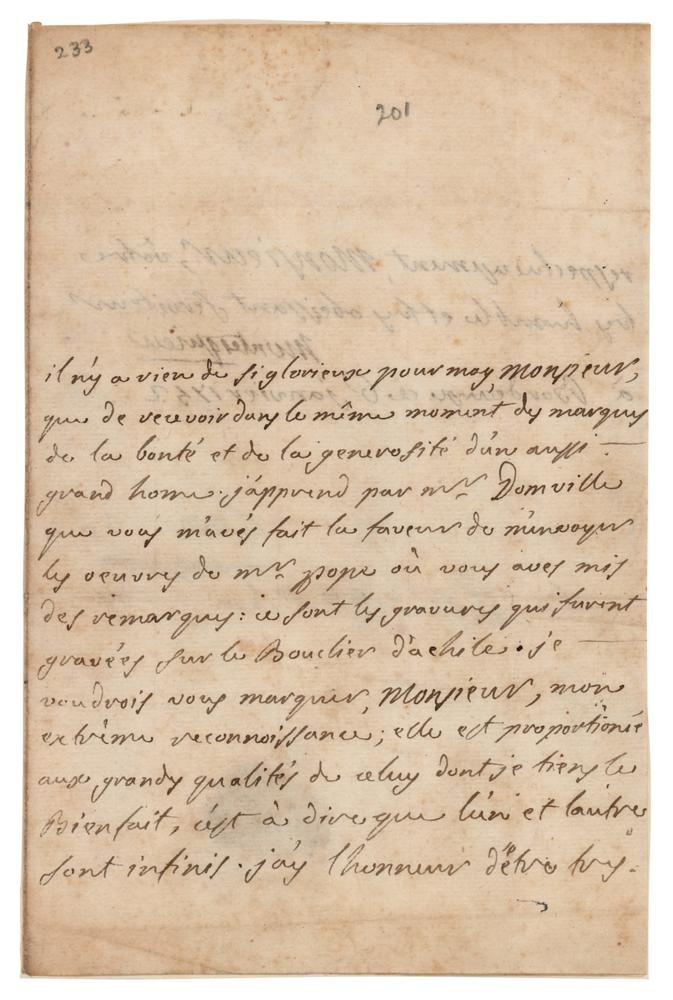 233
201
il n'y a rien de si glorieux pour moy, Monsieur,
que de recevoir dans le même moment des marques
de la bonté et de la generosité d'un aussi
grand home. j'apprend par mr. Domville
que vous m'avés fait la faveur de m'envoyer
les oeuvres de mr. pope où vous avés mis
des remarques: ce sont les gravures qui furent
gravées sur le Bouclier d'achile. je
voudrois vous marquer, Monsieur, mon
extrême reconnoissance; elle est proportionée
aux grandes qualités de celuy dont je tiens le
Bienfait, c'est à dire que l'un et l'autre
sont infinis. j'ay l'honneur d'être tres